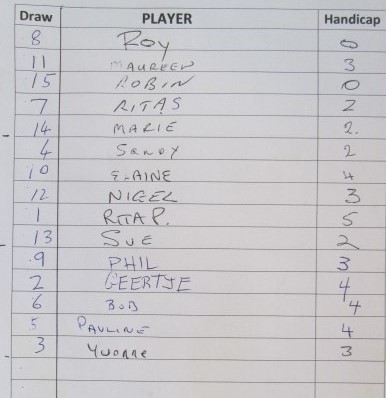 Draw PLAYER Handicap
8 Roy 0
11 MAUREEN 3
15 ROBIN 0
7 RITAS 2
14 MARIE 2.
4 SANDY 2
10 ELAINE 4
12 NIGEL 3
1 RITA P. 5
13 SUE 2
9 PHIL 3
2 GEERTJE 4
6 BOB 4
5 PAULINE 4
3 YVONNE 3